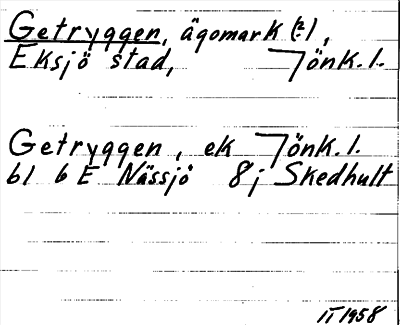 Getryggen, ägomark (?),
Eksjö stad, Jönk. l.
Getryggen, ek Jönk. l.
bl 6 E Nässjö 8j Skedhult
II 1958